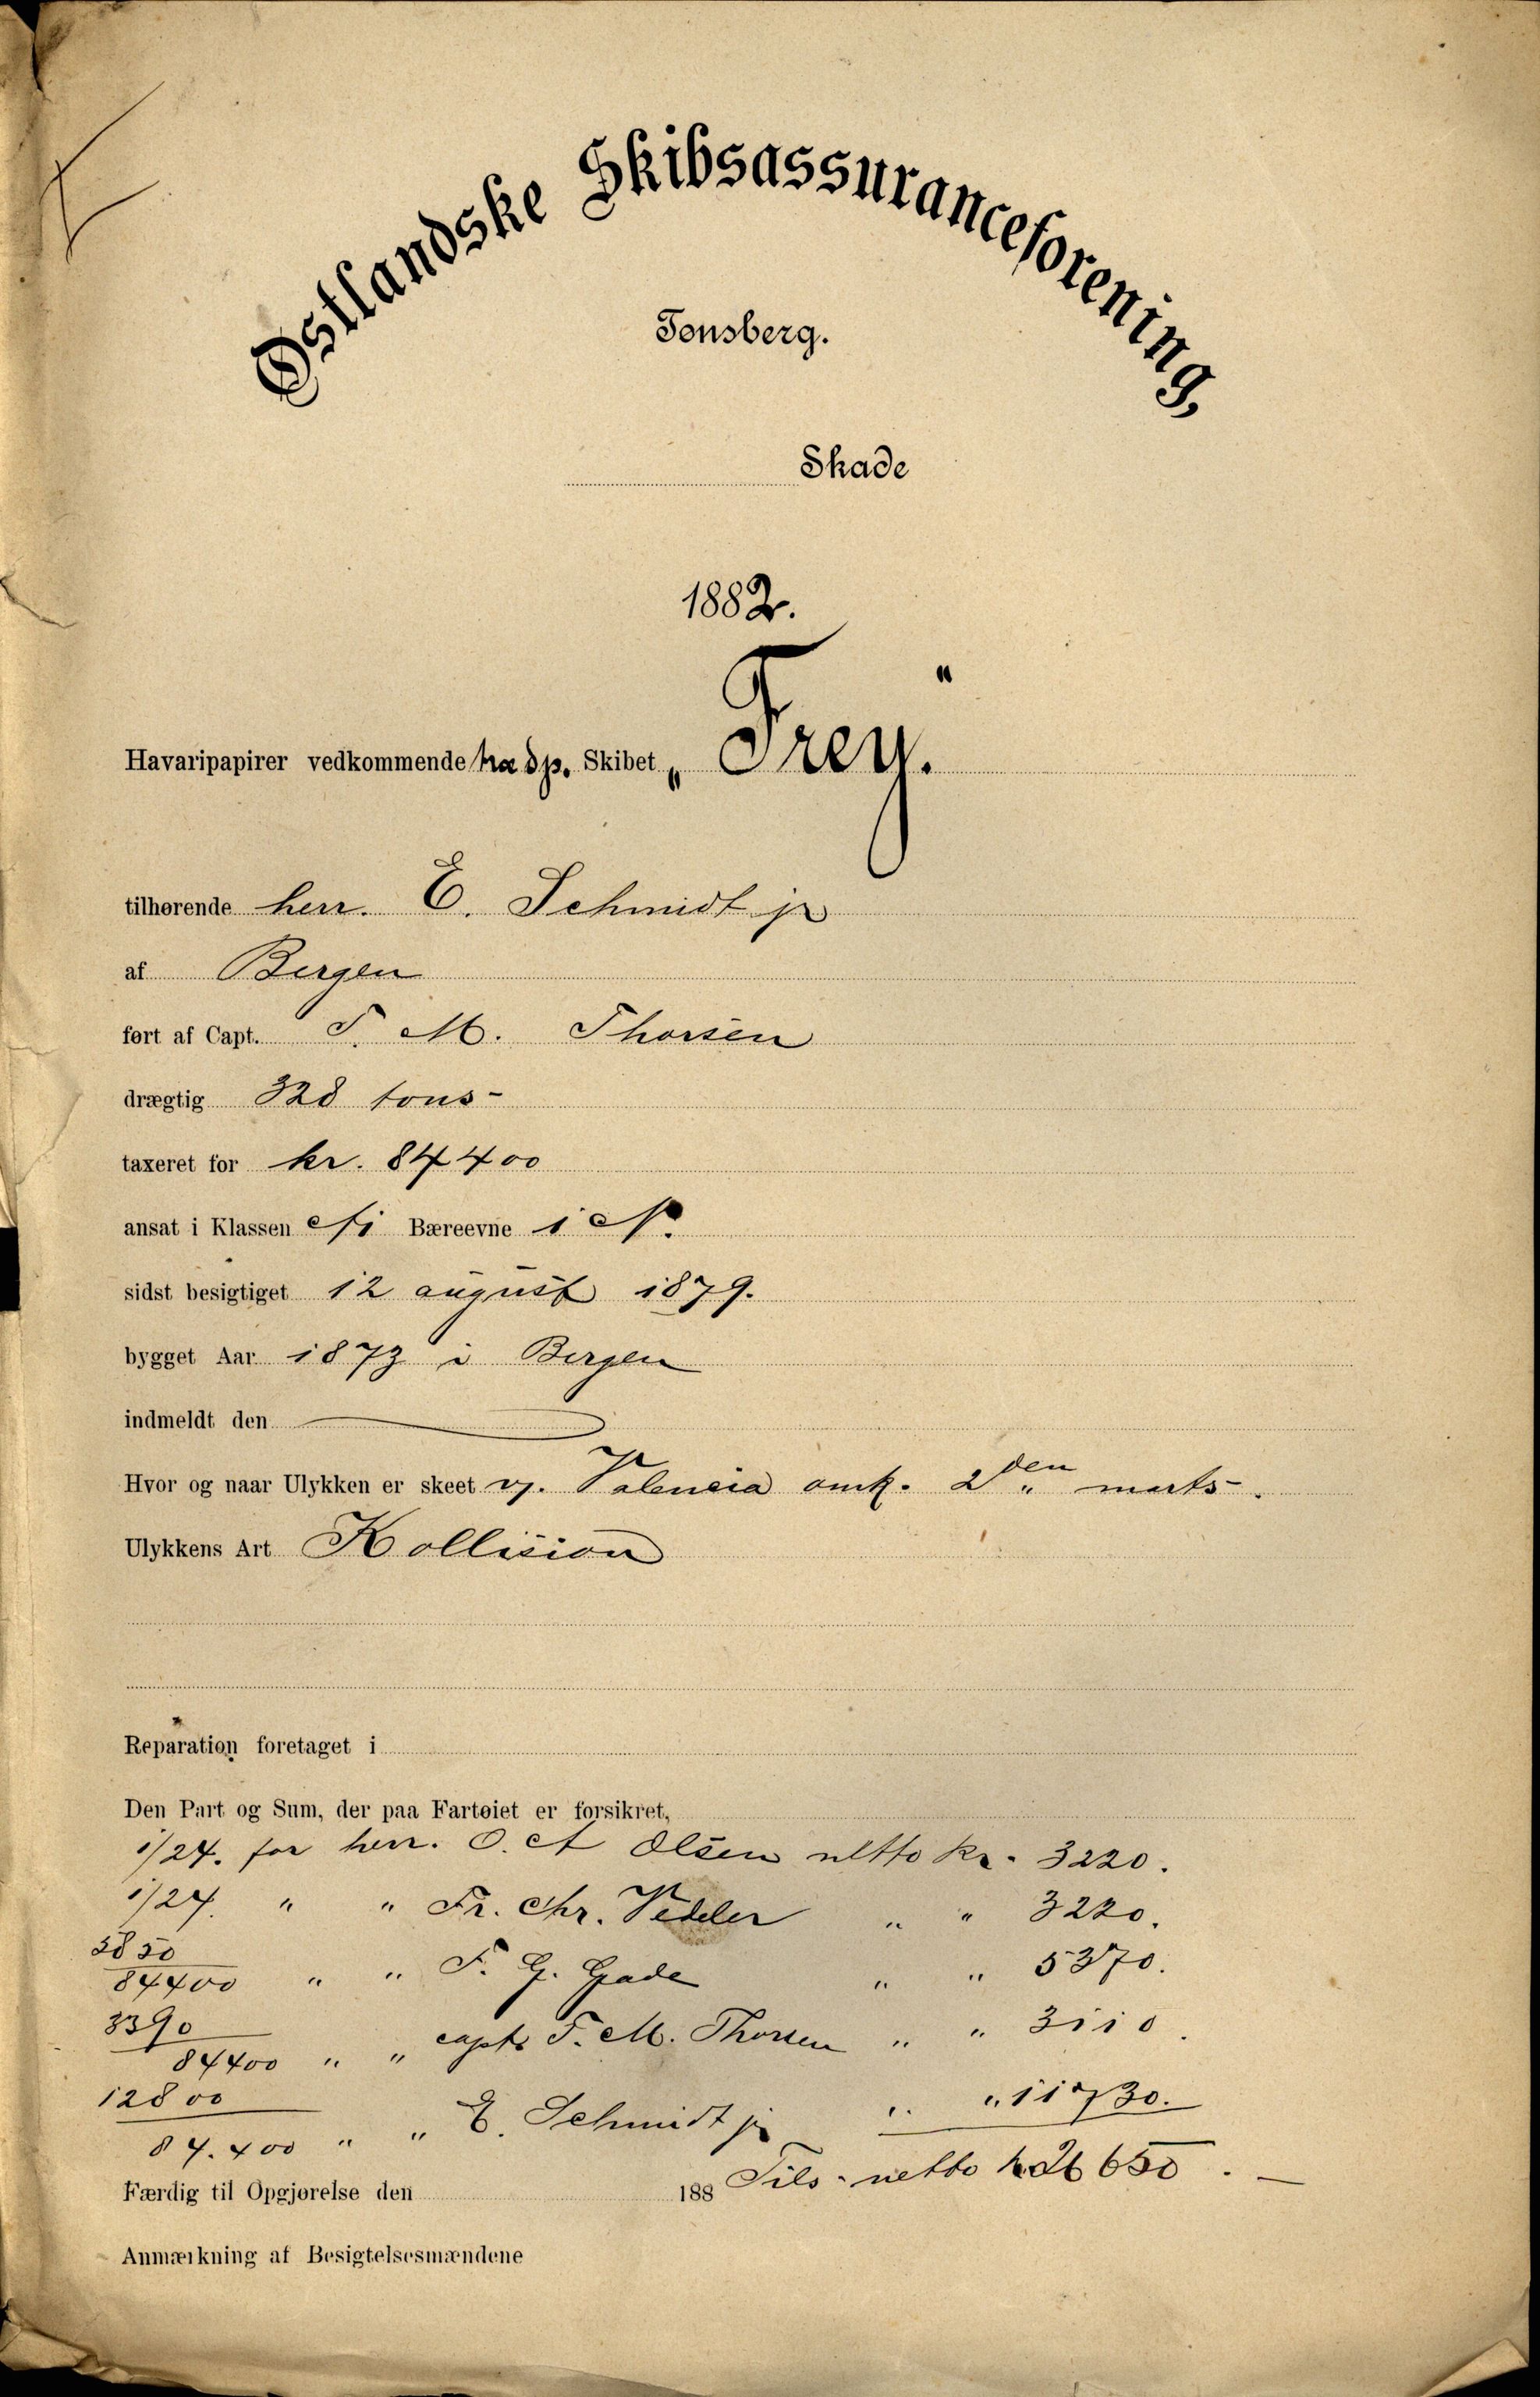 Østlandske Skibsassuranceforening,
Tønsberg.
Skade
1882.
Havaripapirer vedkommende Skibet „Frey."
tilhørende herr. E. Schmidt jr
af Bergen
ført af Capt. T. M. Thorsen
drægtig 328 tons-
taxeret for kr. 84400
ansat i Klassen A i Bæreevne 1 N.
sidst besigtiget 12 august 1879.
bygget Aar 1873 i Bergen
indmeldt den
Hvor og naar Ulykken er skeet v. Valencia omk. 2den marts-.
Ulykkens Art Kollision
Reparation foretaget i
Den Part og Sum, der paa Fartøiet er forsikret,
1/24. for herr. O. A Olsen netto kr. 3220.
1/24. " " Fr. Chr. Vedeler " " 3220.
5850/84400 " " F. G. Gade " " 5370.
3390/84400 " " capt. T. M. Thorsen " " 3110.
12800/84.400 " " E. Schmidt jr " " 11730.
Tils. netto kr 26650. —
Færdig til Opgjørelse den 188
Anmærkning af Besigtelsesmændene